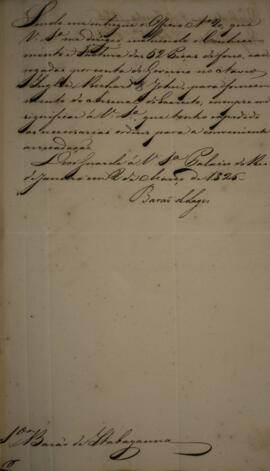 Sendo-me entregue o Officio Nº 20, que
V. Sª me dirigio incluindo o Conhecimento
e Factura das 52 Peças de Lona, carregadas
por conta do Governo no Navio
Inglez
para fornecimento
do Arsenal do Exercito, cumpre-me
significar à V. Sª, que tenho expedido
as necessarias ordens para a conveniente
arrecadação.
Deos Guarde à V. Sª Palacio do Rio
de Janeiro em 2 de Março de 1826
Barão d'Alagoas
Sor Barão de Itabayanna